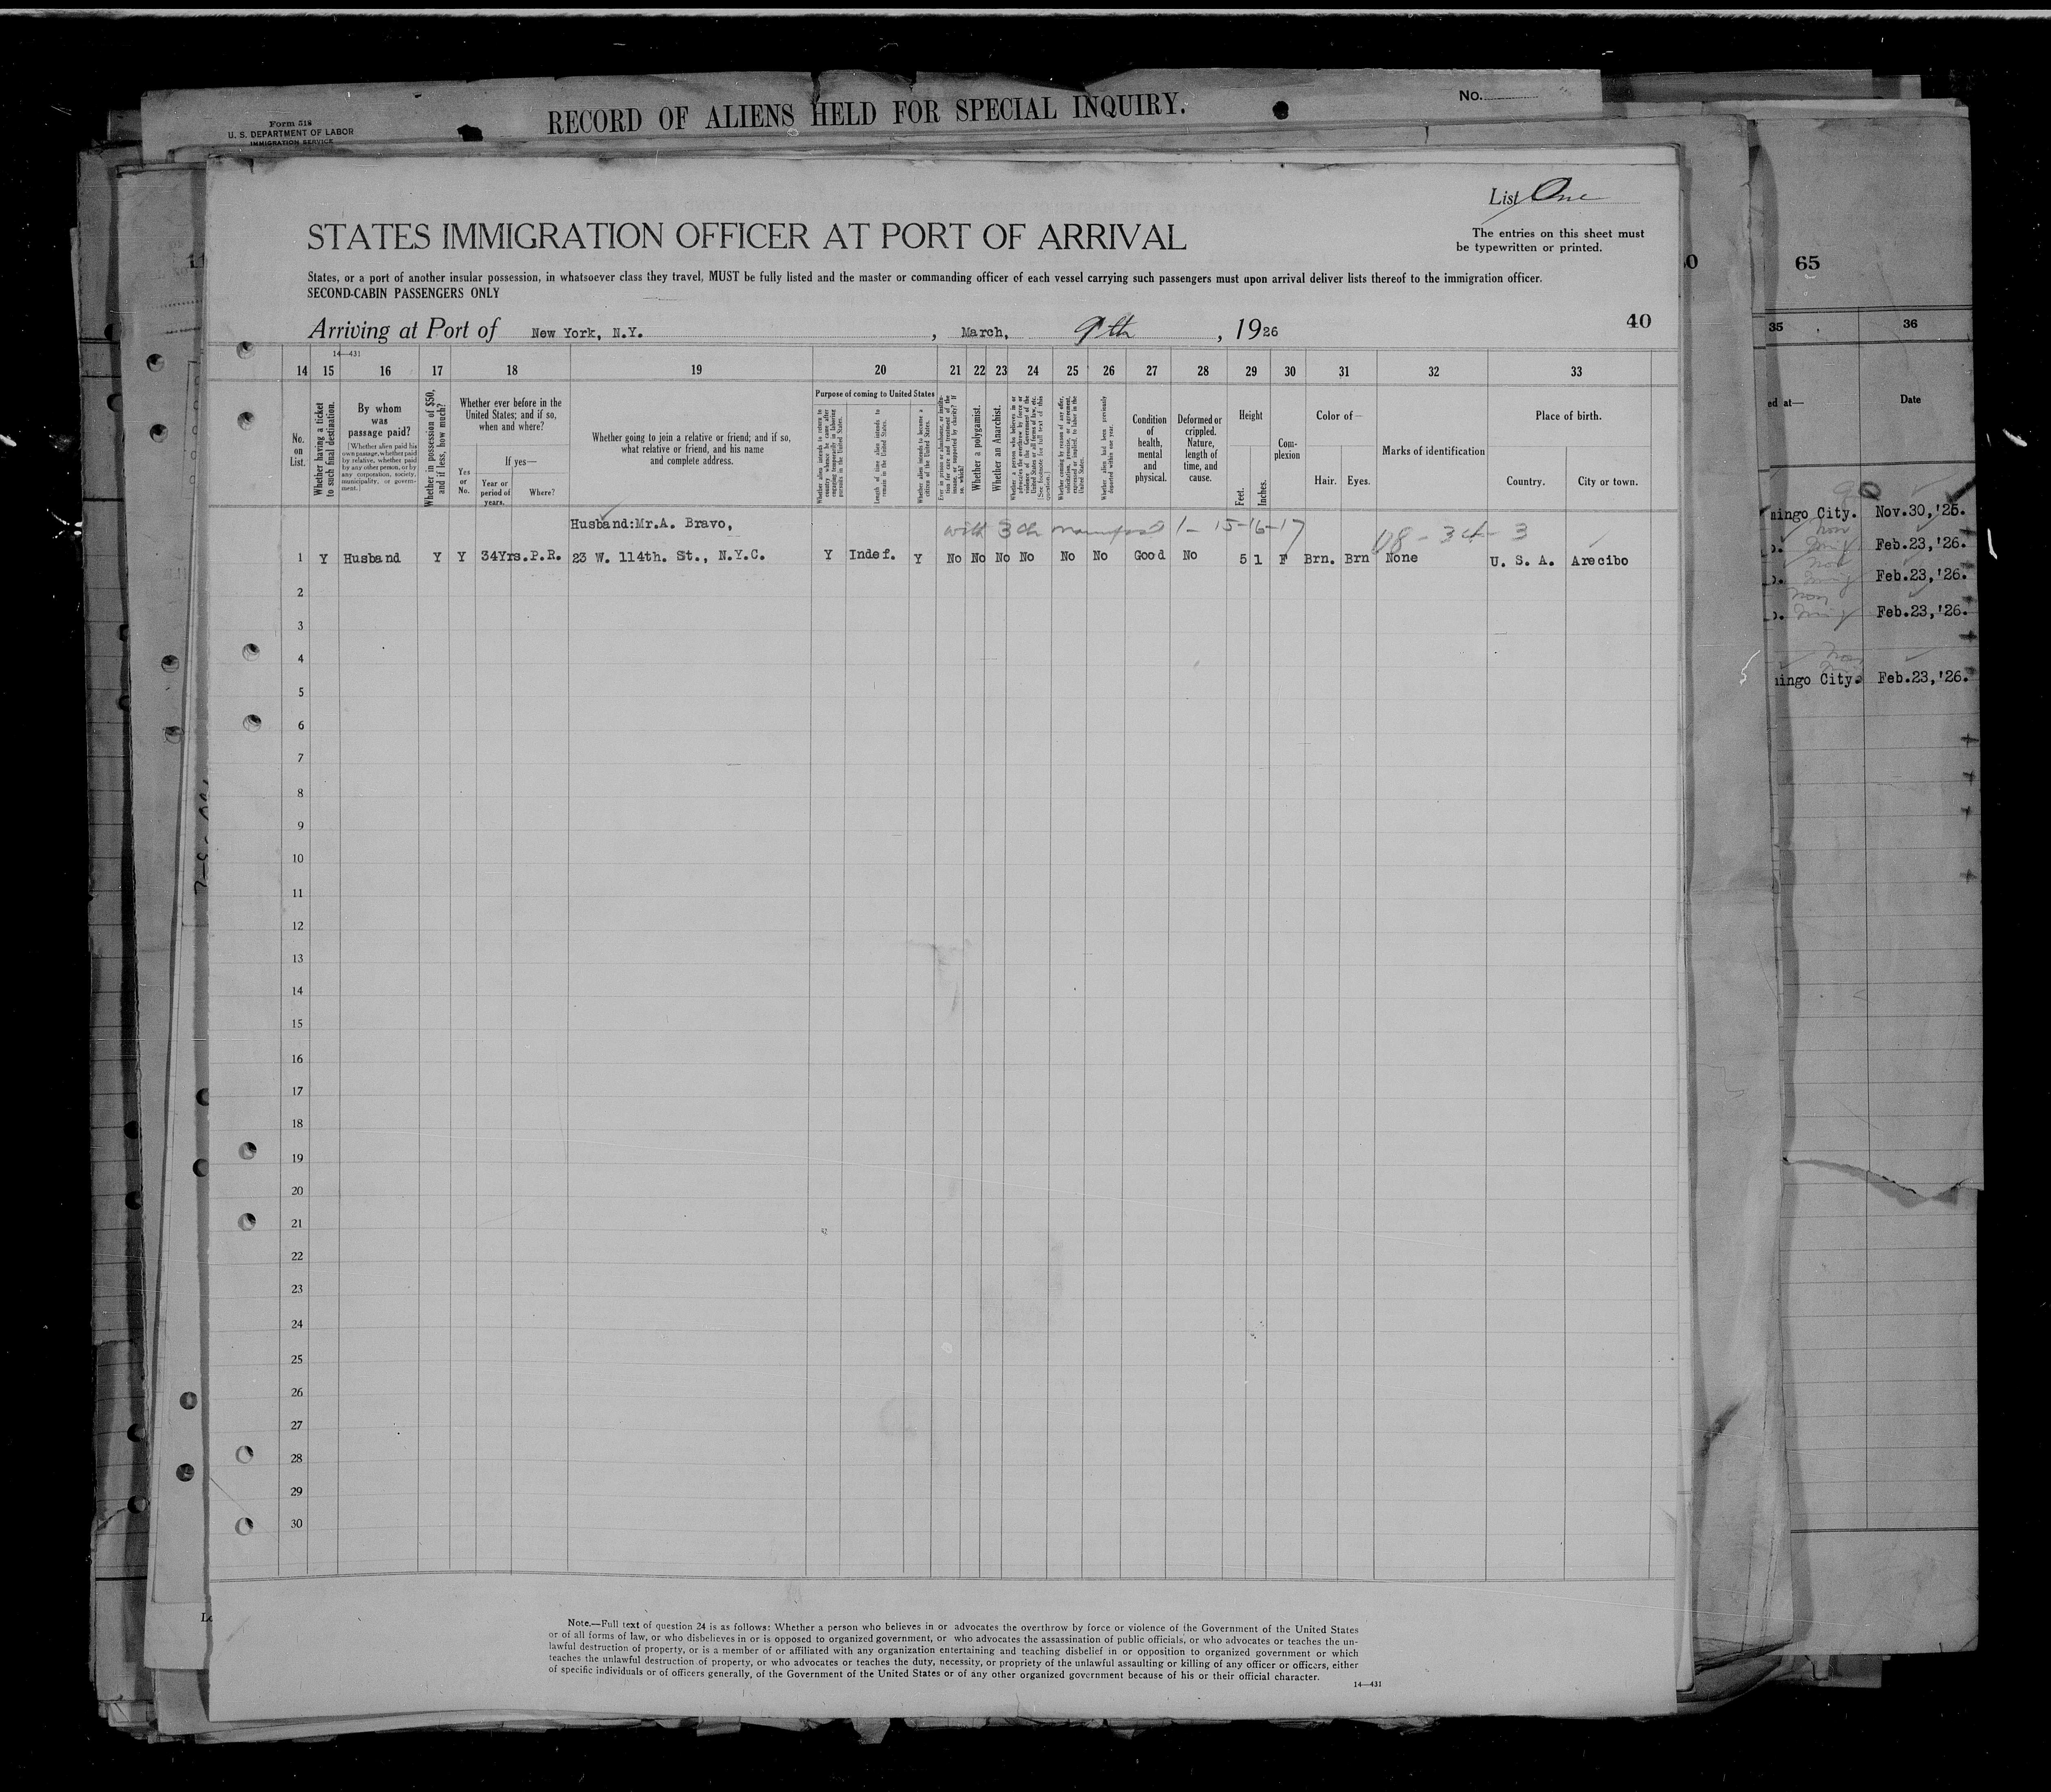 Form 518
U. S. DEPARTMENT OF LABOR
IMMIGRATION SERVICE
RECORD OF ALIENS HELD FOR SPECIAL INQUIRY.
No.
List One
STATES IMMIGRATION OFFICER AT PORT OF ARRIVAL
The entries on this sheet must
be typewritten or printed.
States, or a port of another insular possession, in whatsoever class they travel, MUST be fully listed and the master or commanding officer of each vessel carrying such passengers must upon arrival deliver lists thereof to the immigration officer.
SECOND-CABIN PASSENGERS ONLY
Arriving at Port of New York, N.Y. , March, 9th , 1926
40
14—431
14 15 16 17 18 19 20 21 22 23 24 25 26 27 28 29 30 31 32 33
No. on List.
Whether having a ticket to such final destination.
By whom was passage paid?
[Whether alien paid his own passage, whether paid by relative, whether paid by any other person, or by any corporation, society, municipality, or government.]
Whether in possession of $50, and if less, how much?
Whether ever before in the United States; and if so, when and where?
Yes or No.
If yes—
Year or period of years.
Where?
Whether going to join a relative or friend; and if so, what relative or friend, and his name and complete address.
Purpose of coming to United States
Whether alien intends to return to country whence he came after engaging temporarily in laboring pursuits in the United States.
Length of time alien intends to remain in the United States.
Whether alien intends to become a citizen of the United States.
Ever in prison or almshouse, or institution for care and treatment of the insane, or supported by charity? If so, which?
Whether a polygamist.
Whether an Anarchist.
Whether a person who believes in or advocates the overthrow by force or violence of the Government of the United States or all forms of law, etc. [See footnote for full text of this question.]
Whether coming by reason of any offer, solicitation, promise, or agreement, expressed or implied, to labor in the United States.
Whether alien had been previously deported within one year.
Condition of health, mental and physical.
Deformed or crippled. Nature, length of time, and cause.
Height
Feet. Inches.
Complexion
Color of—
Hair. Eyes.
Marks of identification
Place of birth.
Country. City or town.
Husband:Mr.A. Bravo,
with 3 ch 1- 15-16-17
1 Y Husband Y Y 34Yrs.P.R. 23 W. 114th. St., N.Y.C. Y Indef. Y No No No No No No Good No 5 1 F Brn. Brn None U. S. A. Arecibo
2
3
4
5
6
7
8
9
10
11
12
13
14
15
16
17
18
19
20
21
22
23
24
25
26
27
28
29
30
Note.—Full text of question 24 is as follows: Whether a person who believes in or advocates the overthrow by force or violence of the Government of the United States
or of all forms of law, or who disbelieves in or is opposed to organized government, or who advocates the assassination of public officials, or who advocates or teaches the un-
lawful destruction of property, or is a member of or affiliated with any organization entertaining and teaching disbelief in or opposition to organized government or which
teaches the unlawful destruction of property, or who advocates or teaches the duty, necessity, or propriety of the unlawful assaulting or killing of any officer or officers, either
of specific individuals or of officers generally, of the Government of the United States or of any other organized government because of his or their official character.
14—431
65
35 36
ed at— Date
mingo City. Nov.30,'25.
Feb.23,'26.
Feb.23,'26.
Feb.23,'26.
ingo City. Feb.23,'26.